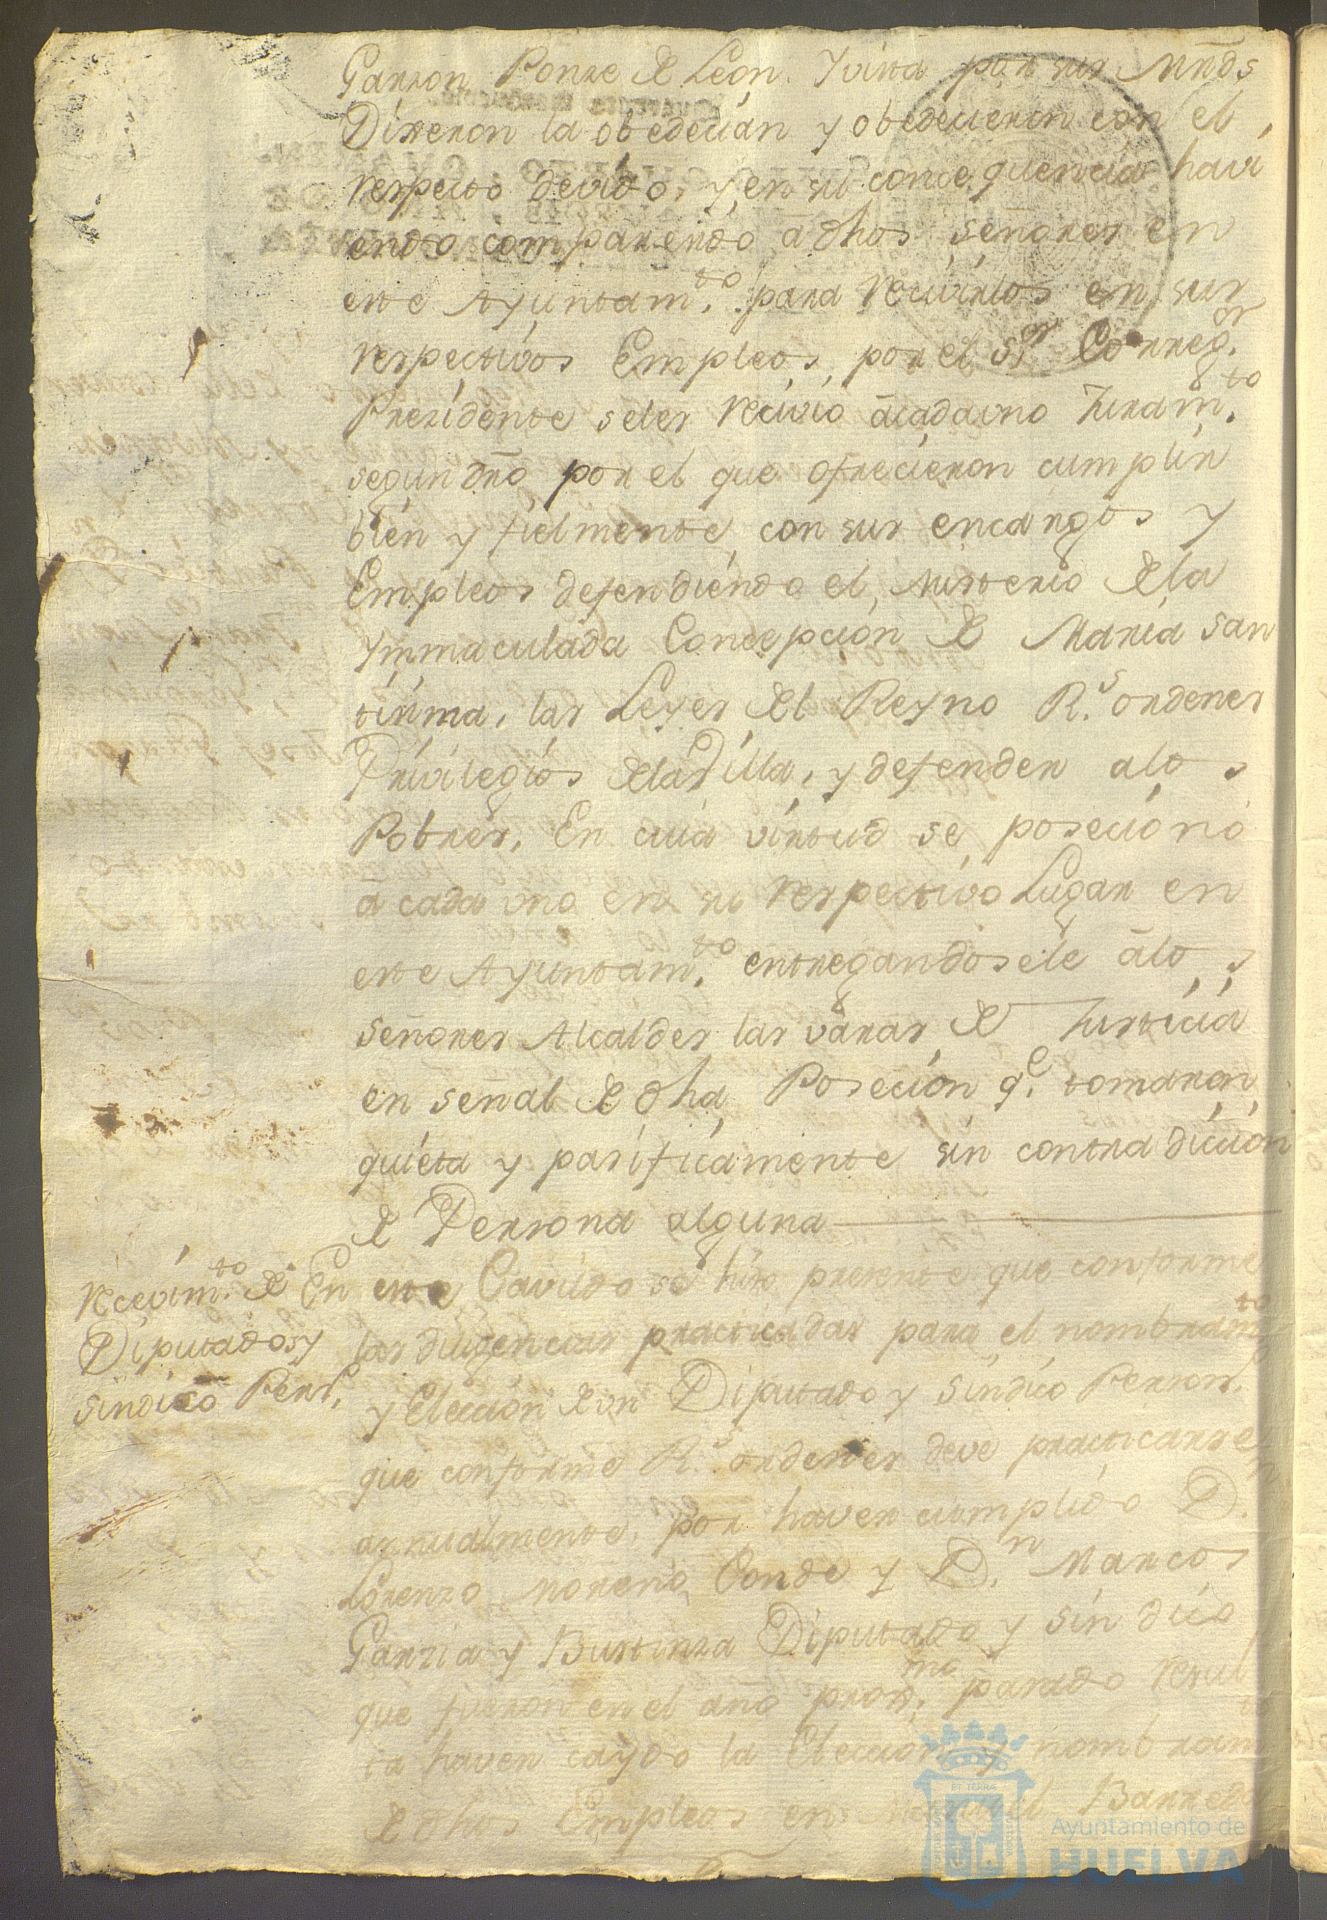 Garzon Ponze de Leon. Y vista por sus Mrds
Dixeron la obedecian y obedecieron con el
respecto devido, y en su consequencia havi
endo comparecido a dhos señores en
este Ayuntam.to para recivirlos en sus
respectivos Empleos, por el S.or Correg.or
Prezidente se les recivió á cada uno Juram.to
segun dro por el que ofrecieron cumplir
bien y fielmente con sus encargos y
Empleos defendiendo el Misterio de la
Ymmaculada Concepcion de Maria San
tisima, las Leyes del Reyno R.s ordenes
Privilegios de la Villa, y defender a los
Pobres. En cuia virtud se posecionó
a cada uno en su respectivo Lugar en
este Ayuntam.to entregandosele á los
señores Alcaldes las varas de Justicia
en señal de dha Poseción q.e tomaron
quieta y pasificamente sin contradiccion
de Persona alguna
Recevim.to de
Diputados y
sindico Pers.
En este Cavildo se hizo presente que conforme
las diligencias practicadas para el nombram.to
y Eleccion de un Diputado y Sindico Person.
que conforme R.s ordenes deve practicarse
annualmente, por haver cumplido D.n
Lorenzo Moreno Conde y D.n Marcos
Garzia y Bustinza Diputado y sindico
que fueron en el año prox.mo pasado resul
ta haver caydo la Eleccion y nombram.to
de dhos Empleos en Manuel Barreda
ET TERRÆ
Ayuntamiento de
HUELVA